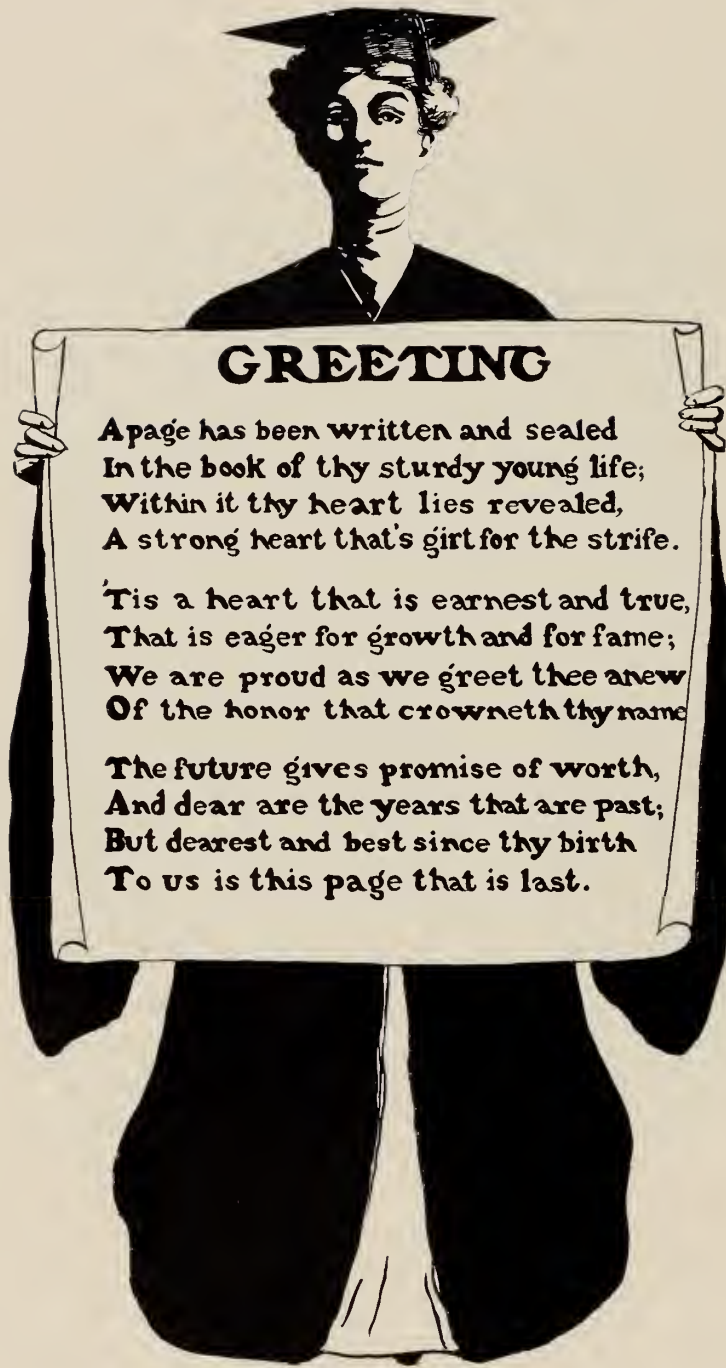 GREETING
A page has been written and sealed
In the book of thy sturdy young life;
Within it thy heart lies revealed,
A strong heart that's girt for the strife.
'Tis a heart that is earnest and true,
That is eager for growth and for fame;
We are proud as we greet thee anew
Of the honor that crowneth thy name
The future gives promise of worth,
And dear are the years that are past;
But dearest and best since thy birth
To us is this page that is last.